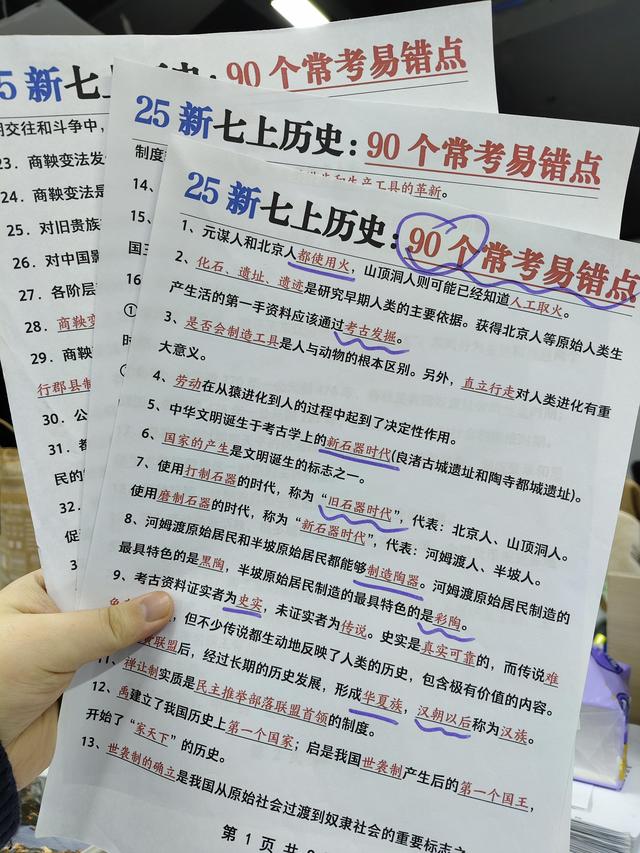 5 新七上历史：90 个常考易错点
交往和斗争中，
23．商鞅变法发
24．商鞅变法是
25．对旧贵族
26．对中国影
27．各阶层
28．商鞅变
29．商鞅
行郡县制
30．公
31．都
民的
32．
促
3
25 新七上历史：90 个常考易错点
制度
和生产工具的革新。
14、
15、
国王
16
①
时
25 新七上历史：90 个常考易错点
1、元谋人和北京人都使用火，山顶洞人则可能已经知道人工取火。
2、化石、遗址、遗迹是研究早期人类的主要依据。获得北京人等原始人类生
产生活的第一手资料应该通过考古发掘。
3、是否会制造工具是人与动物的根本区别。另外，直立行走对人类进化有重
大意义。
4、劳动在从猿进化到人的过程中起到了决定性作用。
5、中华文明诞生于考古学上的新石器时代(良渚古城遗址和陶寺都城遗址)。
6、国家的产生是文明诞生的标志之一。
7、使用打制石器的时代，称为“旧石器时代”，代表：北京人、山顶洞人。
使用磨制石器的时代，称为“新石器时代”，代表：河姆渡人、半坡人。
8、河姆渡原始居民和半坡原始居民都能够制造陶器。河姆渡原始居民制造的
最具特色的是黑陶，半坡原始居民制造的最具特色的是彩陶。
9、考古资料证实者为史实，未证实者为传说。史实是真实可靠的，而传说难
，但不少传说都生动地反映了人类的历史，包含极有价值的内容。
联盟后，经过长期的历史发展，形成华夏族，汉朝以后称为汉族。
11、禅让制实质是民主推举部落联盟首领的制度。
12、禹建立了我国历史上第一个国家；启是我国世袭制产生后的第一个国王，
开始了“家天下”的历史。
13、世袭制的确立是我国从原始社会过渡到奴隶社会的重要标志之
第 1 页 共